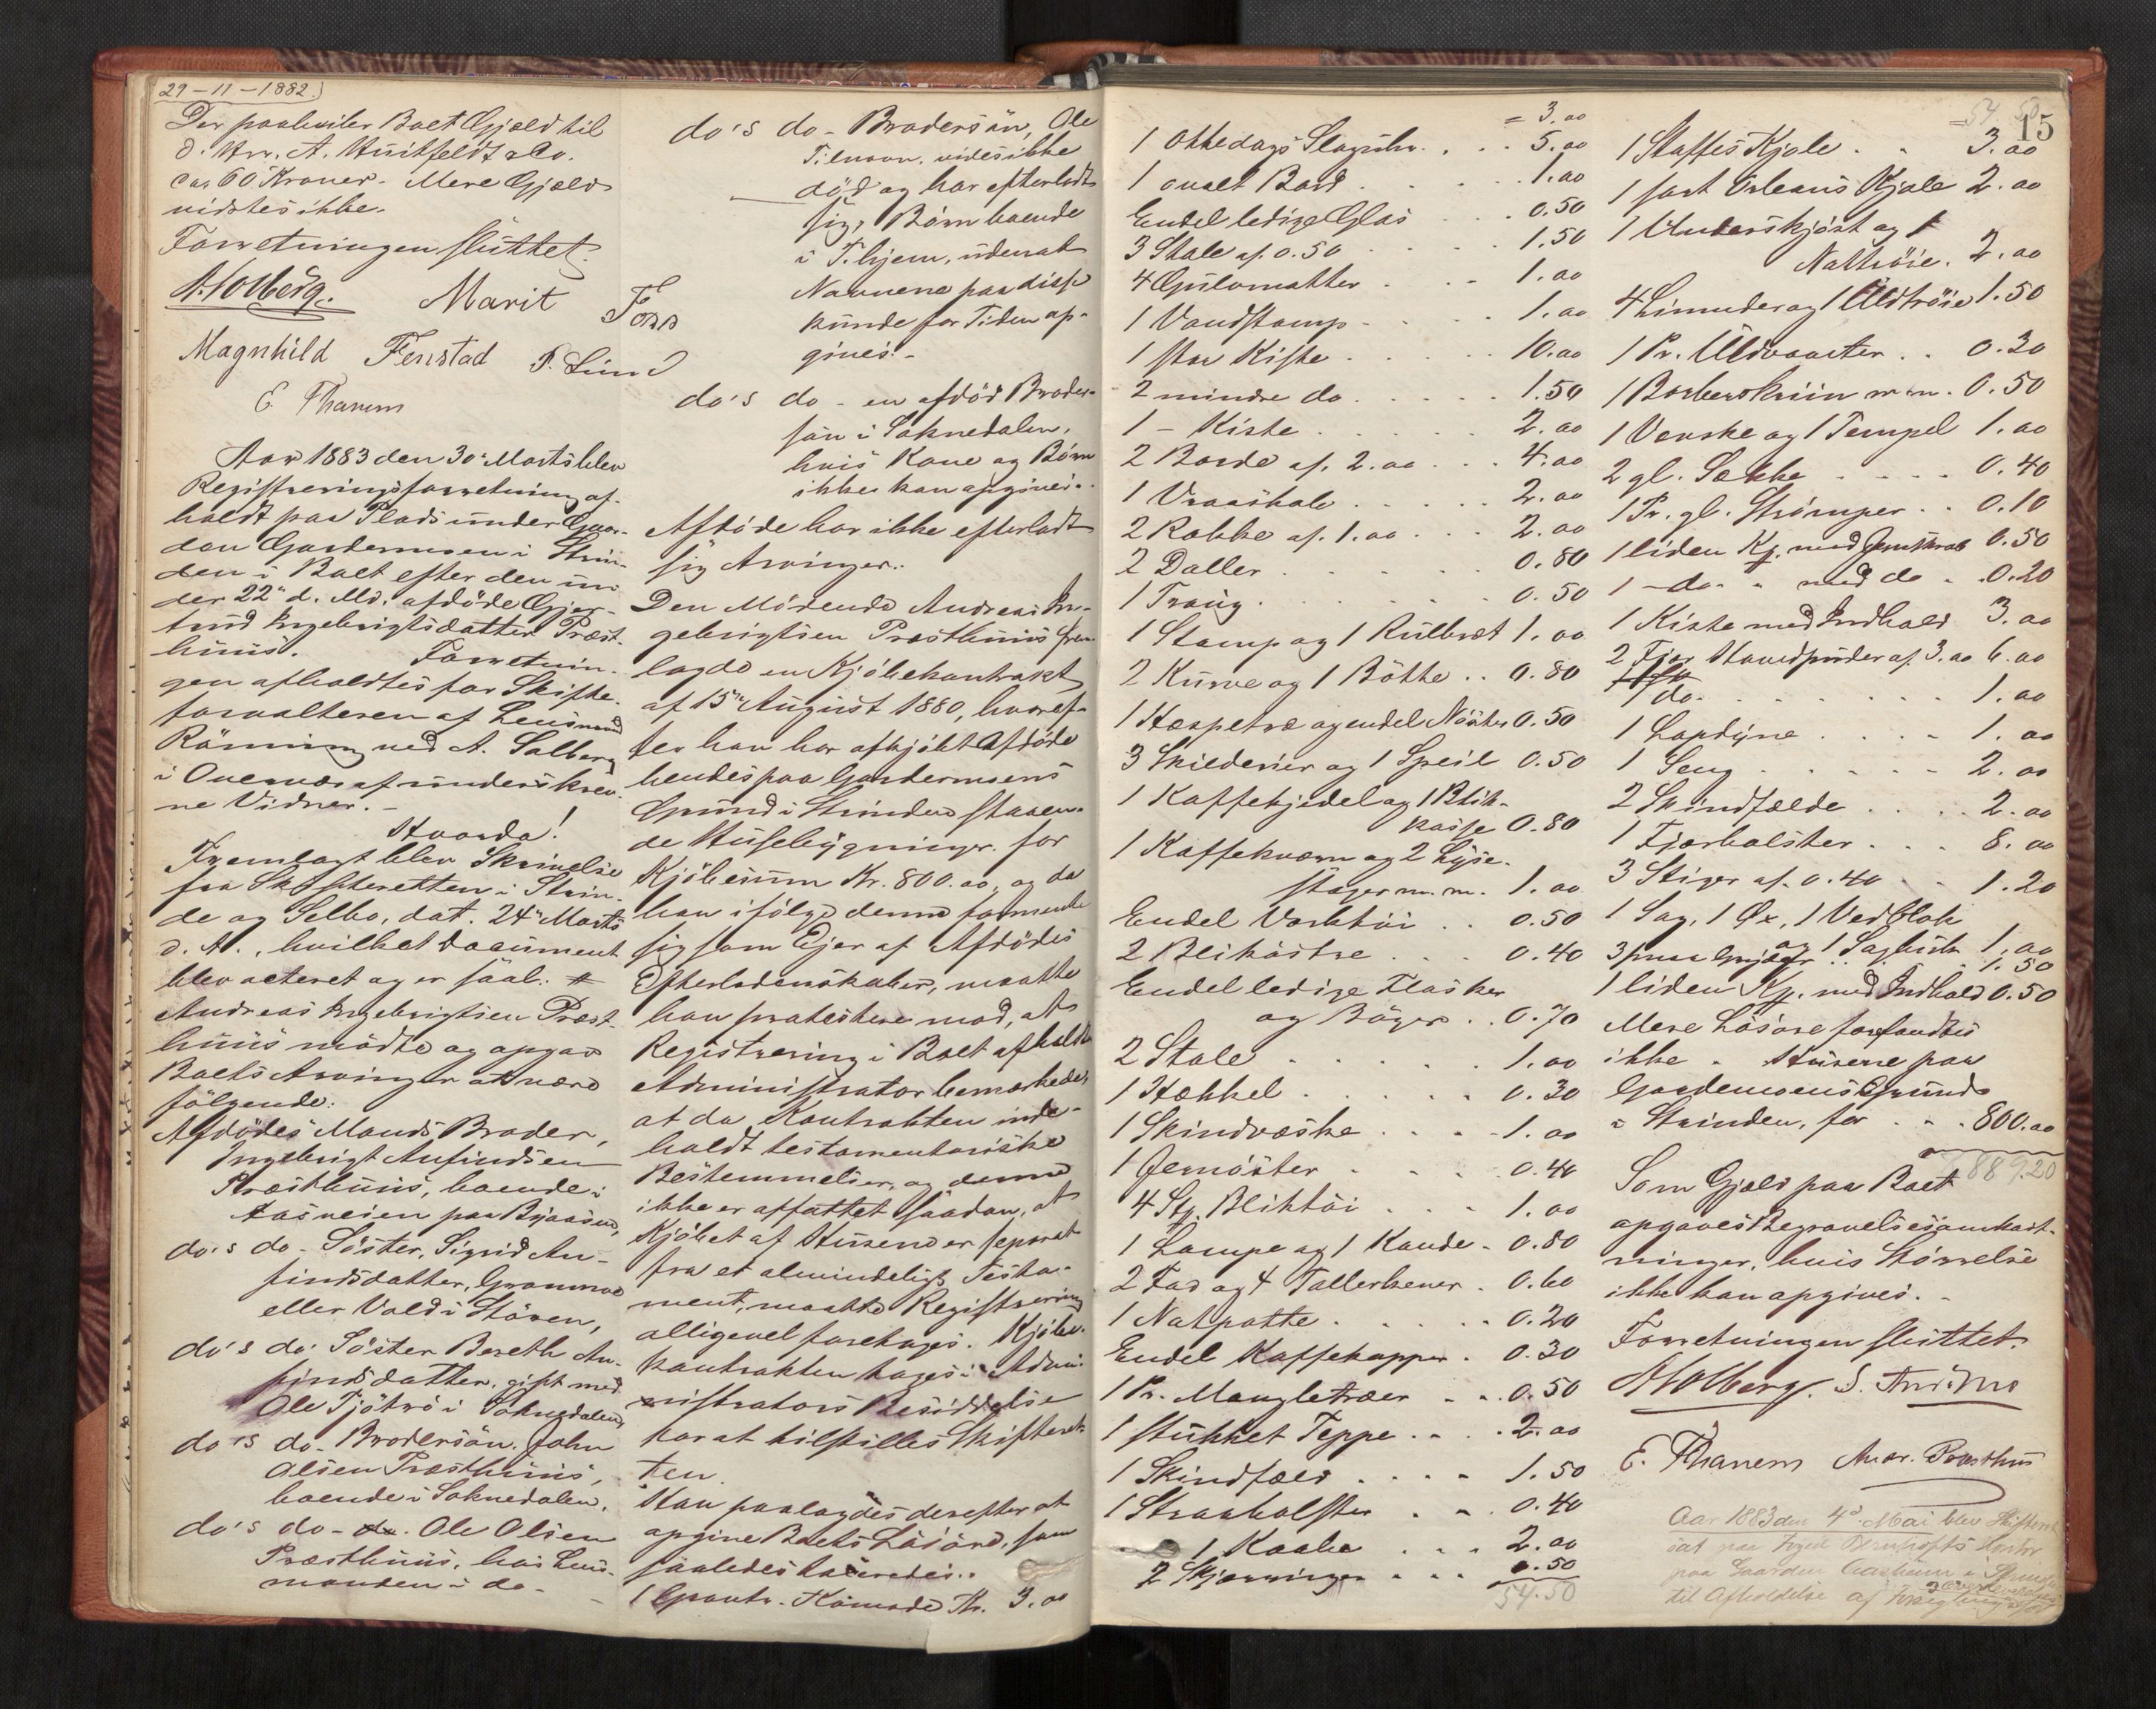 29-11-1882.
Der paahviler Boet Gjæld til
d. Hrr. A. Huitfeldt & Co.
ca. 60 Kroner. Mere Gjæld
vidstes ikke.
Forretningen sluttet.
A. Solberg. Marit Foss
Magnhild Fenstad P. Lund
E. Thanem
Aar 1883 den 30' Marts blev
Registreringsforretning af-
holdt paa Plads under Gaar-
den Gardermoen i Strin-
den i Boet efter den un-
der 22' d. Md. afdøde Gjer-
trud Ingebrigtsdatter Præst-
huus. Forretnin-
gen afholdtes for Skifte-
forvalteren af Lensmand
Rønning ved A. Solberg
i Overvær af underskrev-
ne Vidner.-
Hvorda!
Fremlagt blev Skrivelse
fra Skifteretten i Strin-
de og Selbo, dat. 24' Marts
d. A., hvilket Document
blev acteret og er saal.: #
Andreas Ingebrigtsen Præst-
huus mødte og opgav
Boets Arvinger at være
følgende:
Afdødes Mands Broder,
Ingebrigt Anfindsen
Præsthuus, boende i
Aasveien paa Byaasen,
do's do - Søster, Sigrid An-
findsdatter,
eller Vold i Støren,
do's do. Søster Bereth An-
findsdatter, gift med
Ole i Soknedalen,
do's do - Brodersøn. John
Olsen Præsthuus,
boende i Soknedalen.
do's do - do. Ole Olsen
Præsthuus, hos Lens-
manden i do -
do's do - Brodersøn, Ole
Tilnavn vides ikke
død og har efterladt
sig, Børn boende
i T.hjem, uden at
Navnene paa disse
kunde for Tiden op-
gives.-
do's do - en afdød Broder-
søn i Soknedalen,
hvis Kone og Børn
ikke kan opgives.
Afdøde har ikke efterladt
sig Arvinger.
Den Mødende Andreas In-
gebrigtsen Præsthuus frem-
lagde en Kjøbekontrakt
af 15de August 1880, hvoref-
ter han har afkjøbt Afdøde
hendes paa Gardermoens
Grund i Strinden staaen-
de Husebygninger for
Kjøbesum Kr. 800.00, og da
han ifølge denne formente
sig som Ejer af Afdødes
Efterladenskaber, maatte
han protestere mod, at
Registrering i Boet afholdtes
Administrator bemærkede,
at da Kontrakten inde-
holdt testamentariske
Bestemmelser, og denne
ikke er affattet saadan, at
Kjøbet af Husene er separat
fra et almindeligt Testa-
ment, maatte Registrering
alligevel foretages. Kjøbe-
kontrakten toges i Admi-
nistrators Besiddelse
for at tilstilles Skifteret-
ten.
Han paalagdes derefter at
opgive Boets Løsøre, som
saaledes taxeredes:
1 Komode Kr. 3.00
= 3.00
1 Ottedags Slaguhr. . . 5.00
1 ovalt Bord . . . 1.00
Endel ledige Glas . . 0.50
3 Stole af 0.50 . . . 1.50
4 Gulvmatter . . . 1.00
1 Vandstamp . . . 1.00
1 stor Kiste . . . 10.00
2 mindre do . . . 1.50
1 - Kiste . . . 2.00
2 Borde af. 2.00 . . 4.00
1 . . . 2.00
2 Rokke af. 1.00 . . 2.00
2 Daller . . . 0.80
1 Traug . . . 0.50
1 Stamp og 1 1.00
2 Kurve og 1 Bøtte . . 0.80
1 Hespetræ og endel 0.50
3 Skilderier og 1 Speil 0.50
1 Kaffekjedel og 1 Blik-
kasse 0.80
1 Kaffekværn og 2 Lyse-
stager m.m. 1.00
Endel Værktøi . . 0.50
2 . . . 0.40
Endel ledige Flasker
og Bøger . . 0.70
2 Stole . . . 1.00
1 Hækkel . . . 0.30
1 Skindvæske . . . 1.00
1 . . . 0.40
4 Stk. Bliktøi . . . 1.00
1 Lampe og 1 Kande - 0.80
2 Fad og 4 Tallerkener . 0.60
1 Natpotte . . . 0.20
Endel Kaffekopper . 0.30
1 Pr. Mangletræer . . 0.50
1 stukket Teppe . . . 2.00
1 Skindfæld . . . 1.50
1 Straabolster . . 0.40
1 Kaabe . . . 2.00
2 . . . 0.50
54.50
= 54.50
15
1 Stoffes Kjole . . 3.00
1 sort Orleans Kjole 2.00
1 Underskjørt og 1
Nattrøie. 2.00
4 og 1 Uldtrøie 1.50
1 Pr. Uldvanter . . 0.30
1 m.m. 0.50
1 Væske og 1 Tempel 1.00
2 gl. Sække . . . 0.40
1 Pr. gl. Strømper . . 0.10
1 liden Kj. med 0.50
1 - do - " med do . 0.20
1 Kiste med Indhold 3.00
2 Fjær Hovedpuder af. 3.00 6.00
1 do. . . . 1.00
1 . . . 1.00
1 Seng . . . 2.00
2 Skindfælde . . . 2.00
1 Fjærbolster . . . 8.00
3 Stiger af. 0.40 . . 1.20
1 Sag, 1 Øx, 1 Vedblok
og 1 1.00
3 . . 1.50
1 liden Kj. med Indhold 0.50
Mere Løsøre forefandtes
ikke. Husene paa
Gardemoens Grund
i Strinden, for . . . 800.00
889.20
Som Gjæld paa Boet
opgaves Begravelsesomkost-
ninger, hvis Størrelse
ikke kan opgives. -
Forretningen sluttet.
A. Solberg. S.
E. Thanem Andr. Præsthus
Aar 1883 den 4de Mai blev Skifteret
sat paa Foged Kontor
paa Gaarden i
til Afholdelse af